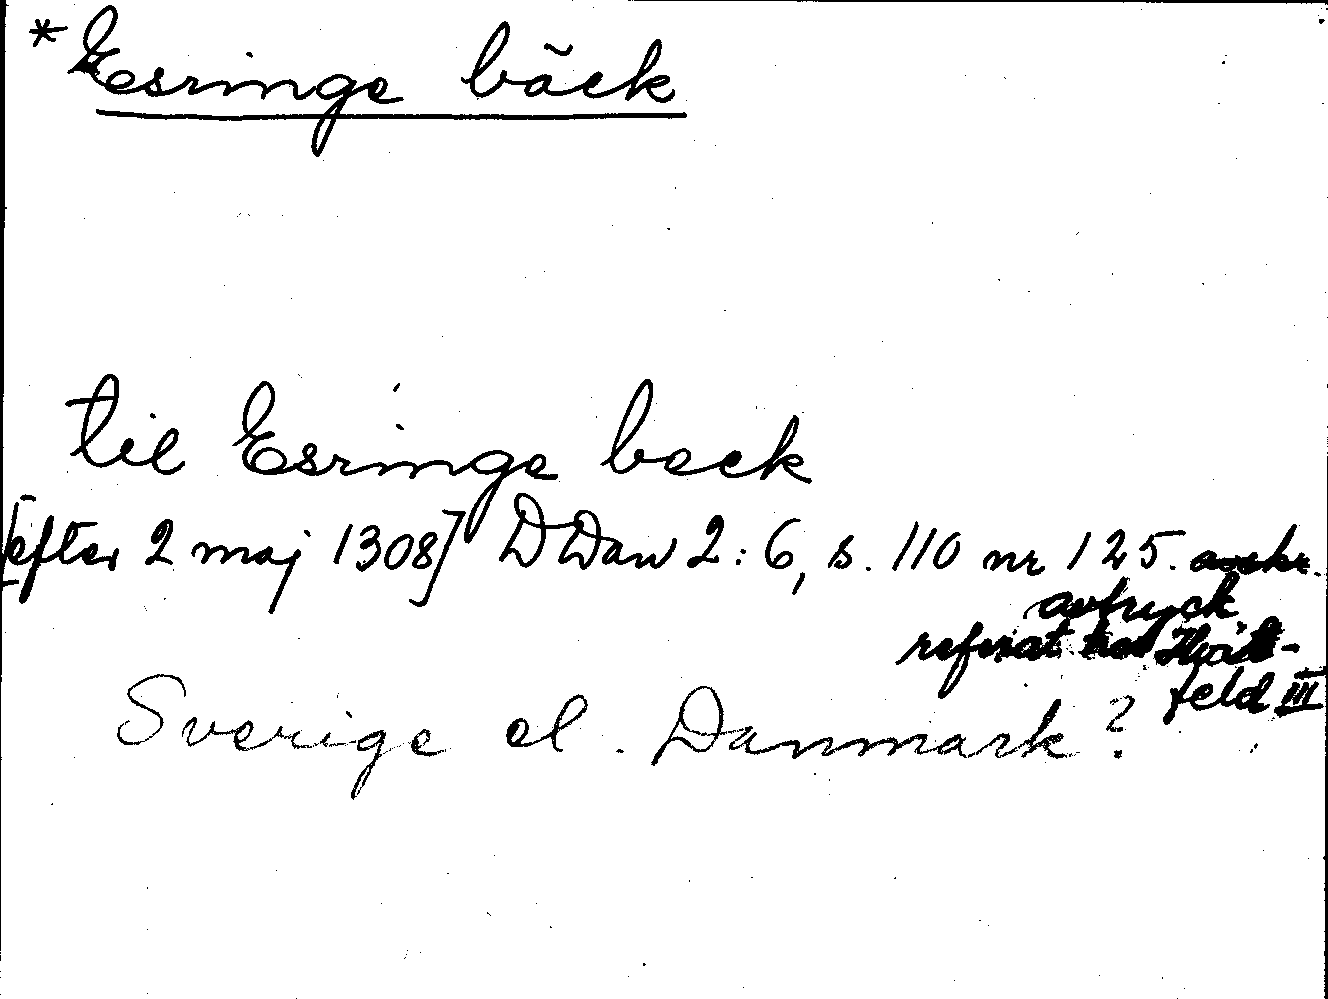 *Esringe bäck
til Esringe beck
[efter 2 maj 1308] DDan 2:6, s. 110 nr 125. avskr.
avtryck
referat hos Hvit-
feld III
Sverige el. Danmark?